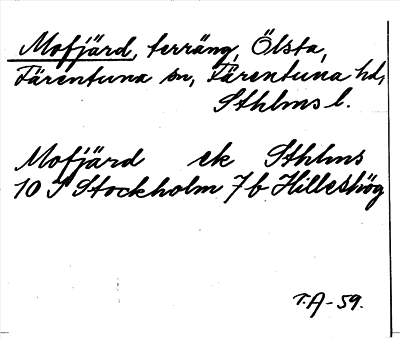 Mofjärd, terräng, Ölsta,
Färentuna sn, Färentuna hd,
Sthlms l.
Mofjärd ek Sthlms
10 I Stockholm 7b Hilleshög
T.A-59.